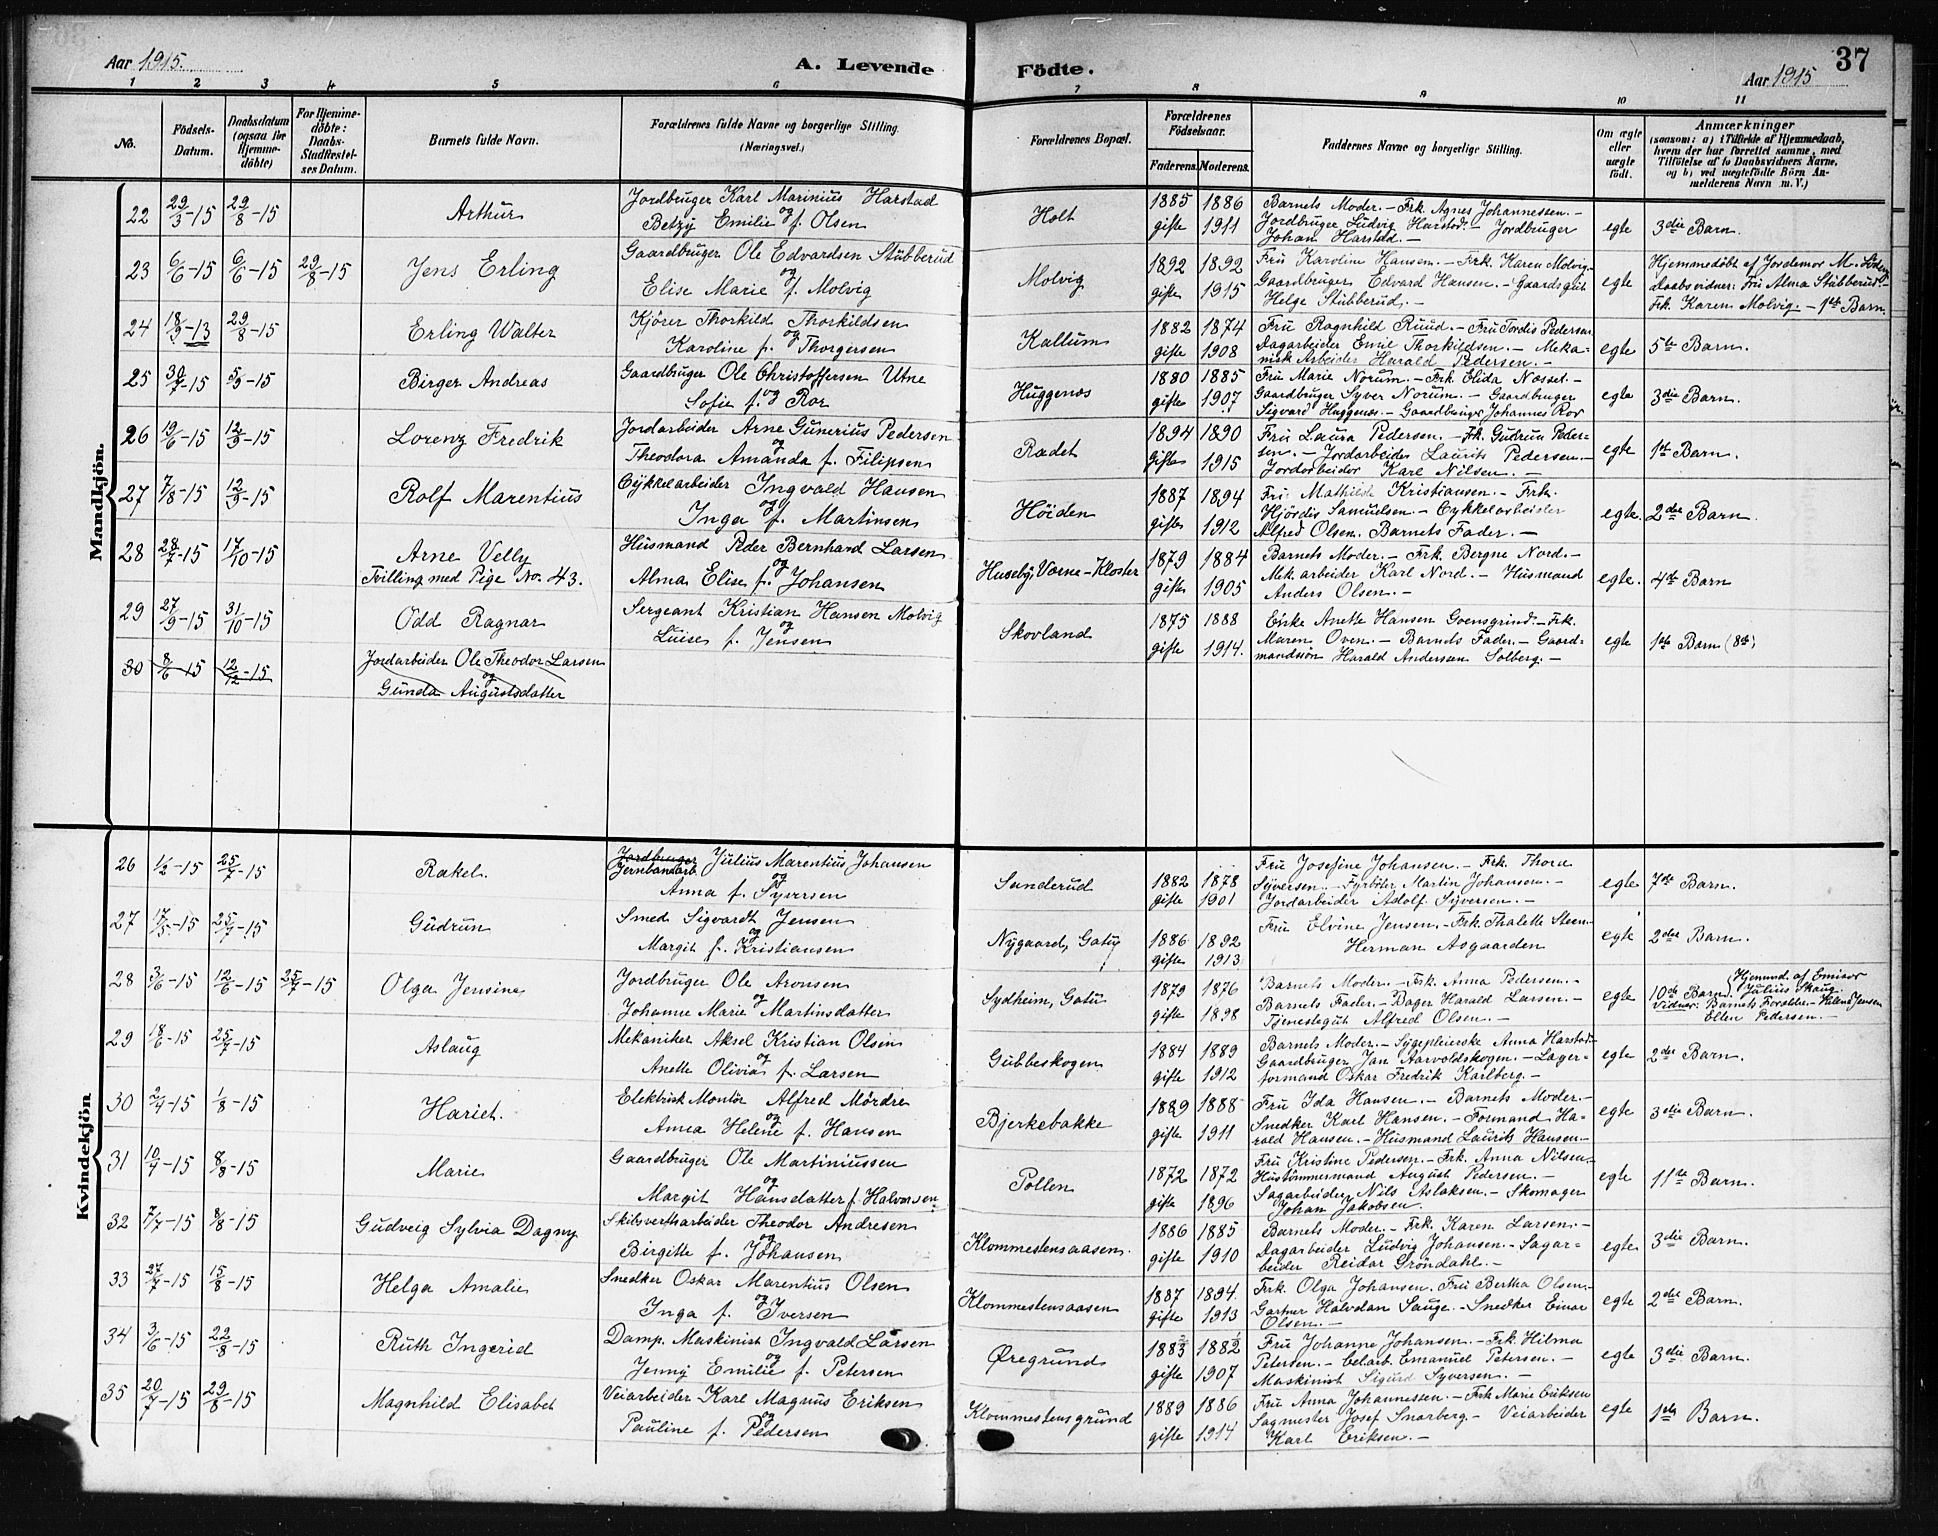 Aar 1915.
A. Levende Födte.
37
Aar 1915
1 2 3 4 5 6 7 8 9 10 11
No.
Födsels-Datum.
Daabsdatum (ogsaa for Hjemme-döbte)
For Hjemme-döbte: Daabs-Stadfæstel-ses Datum.
Barnets fulde Navn.
Forældrenes fulde Navne og borgerlige Stilling. (Næringsvei.)
Forældrenes Bopæl.
Forældrenes Födselsaar.
Faderens. Moderens.
Faddernes Navne og borgerlige Stilling.
Om ægte eller uægte födt.
Anmærkninger
(saasom: a) i Tilfælde af Hjemmedaab, hvem der har forrettet samme, med Tilföielse af to Daabsvidners Navne, og b) ved uægtefödte Börn An-melderens Navn m. V.)
Mandkjön.
22 29/3-15 29/8-15 Arthur Jordbruger Karl Marinius Harstad og Betzy Emilie f. Olsen Holt 1885 1886 gifte 1911 Barnets Moder. - Frk. Agnes Johannessen. - Jordbruger Ludvig Harstad. - Jordbruger Johan Harstad. - egte 3die Barn.
23 6/6-15 6/6-15 29/8-15 Jens Erling Gaardbruger Ole Edvardsen Stubberud og Elise Marie f. Molvig Molvig 1892 1892 gifte 1915 Fru Karoline Hansen. - Frk. Karen Molvig. - Gaardbruger Edvard Hansen. - Gaardsgut Helge Stubberud. - egte Hjemmedøbt af Jordemor M. Daabsvidner: Fru Alma Stubberud. - Frk. Karen Molvig. - 1ste Barn.
24 18/3-13 29/8-15 Erling Walter Kjører Thorkild Thorkildsen og Karoline f. Thorgersen Kallum 1882 1874 gifte 1908 Fru Ragnhild Ruud. - Fru Tordis Pedersen Dagarbeider Emil Thorkildsen. - Meka-nisk Arbeider Harald Pedersen. egte 5te Barn.
25 30/7-15 5/9-15 Birger Andreas Gaardbruger Ole Christoffersen Utne og Sofie f. Ror Huggenæs 1880 1885 gifte 1907 Fru Marie Norum. - Frk. Elida Næsset. - Gaardbruger Syver Norum. - Gaardbruger Sigvard Huggenæs. - Gaardbruger Johannes Ror egte 3die Barn.
26 19/6-15 12/9-15 Lorenz Fredrik Jordarbeider Arne Gunerius Pedersen og Theodora Amanda f. Filipsen Rædet 1894 1890 Gifte 1915 Fru Laura Pedersen. - Frk. Gudrun Peder=sen. - Jordarbeider Laurits Pedersen. - Jordarbeider Karl Nilsen. - egte 1ste Barn.
27 7/8-15 12/9-15 Rolf Marentius Cykkelarbeider Ingvald Hansen og Inga f. Martinsen Höiden 1887 1894 gifte 1912 Fru Mathilde Kristiansen. - Frk. Hjördis Samuelsen. - Cykkelarbeider Alfred Olsen. Barnets Fader. - egte. 2det Barn.
28 28/7-15 17/10-15 Arne Velly Tvilling med Pige No. 43. Husmand Peder Bernhard Larsen og Alma Elise f. Johansen Huseby, Værne-Kloster 1879 1884 gifte 1905 Barnets Moder. - Frk. Bergne Nord. - Mek. arbeider Karl Nord. - Husmand Anders Olsen. - egte. 4de Barn
29 27/9-15 31/10-15 Odd Ragnar Sergeant Kristian Hansen Molvig og Luise f. Jensen Skovland 1875 1888 gifte 1914. Enke Anette Hansen Goensgrind. - Frk. Maren Oven. - Barnets Fader. - Gaard=mandssön Harald Andersen Solberg. - egte 1ste Barn (8de)
30 8/6-15 12/12-15 Jordarbeider Ole Theodor Larsen og Gunda Augustsdatter
Kvindekjön
26 1/2-15 25/7-15 Rakel. Jordbruger Jernbanearb. Julius Marentius Johansen og Anna f. Syversen Sunderud 1882 1878 gifte 1901 Fru Josefine Johansen. - Frk. Thora Syversen. - Fyrböter Martin Johansen. - Jordarbeider Adolf Syversen. - egte 7de Barn.
27 17/5-15 25/7-15 Gudrun Smed Sigvardt Jensen og Margit f. Kristiansen Nygaard, Gatu 1886 1892 gifte 1913 Fru Elvine Jensen. - Frk. Thalette Steen. - Herman Aagaarden egte 2det Barn.
28 3/6-15 12/6-15 25/7-15 Olga Jensine Jordbruger Ole Aronsen og Johanne Marie Martinsdatter Sydheim, Gatu 1879 1876 gifte 1898 Barnets Moder. - Frk. Anna Pedersen. - Barnets Fader. - Bager Harald Larsen. - Tjenestegut Alfred Olsen. - egte 10de Barn. Hjemmd. af Emisær Julius Skaug. Vidner: Barnets Forældre. - Helene Jensen Ellen Pedersen. -
29 18/6-15 25/7-15 Aslaug Mekaniker Aksel Kristian Olsen og Anette Olivia f. Larsen Gubbeskogen 1884 1889 gifte 1912 Barnets Moder. - Sygepleierske Anna Harstad. - Gaardbruger Jan Aarvoldskogen. - Lager=formand Oskar Fredrik Karlberg. - egte 2det Barn.
30 2/4-15 1/8-15 Hariet. Elektrisk Montör Alfred Mördre og Anna Helene f. Hansen Bjerkebakke 1889 1888 gifte 1911 Fru Ida Hansen. - Barnets Moder. - Snedker Karl Hansen. - Formand Ha=rald Hansen. - Husmand Laurits Hansen. - egte 3die Barn.
31 10/4-15 8/8-15 Marie Gaardbruger Ole Martiniussen og Margit Hansdatter f. Halvorsen Pollen 1872 1872 gifte 1896 Fru Kristine Pedersen. - Frk. Anna Nilsen. - Hustømmermand August Pedersen. - Sagarbeider Nils Aslaksen. - Skomager Johan Jakobsen. egte 11te Barn.
32 7/7-15 8/8-15 Gudveig Sylvia Dagny Skibsverftsarbeider Theodor Andresen og Birgitte f. Johansen Klommestensaasen. 1886 1885 gifte 1910 Barnets Moder. - Frk. Karen Larsen. - Dagarbeider Ludvig Johansen. - Sagar=beider Reidar Gröndahl. - egte 3die Barn.
33 27/7-15 15/8-15 Helga Amalie Snedker Oskar Marentius Olsen og Inga f. Iversen Klommestensaasen 1887 1894. gifte 1913 Frk. Olga Johansen. Fru Bertha Olsen. - Gartner Halvdan Sauge. - Snedker Einar Olsen. - egte 2det Barn.
34 3/6-15 22/8-15 Ruth Ingerid Damp. Maskinist Ingvald Larsen og Jenny Emilie f. Petersen Øregrund 1883 1882 gifte 1907 Fru Johanne Johansen. - Frk. Hilma Petersen. - Celarb. Emanuel Petersen. - Maskinist Sigurd Syversen. - egte 3die Barn.
35 20/7-15 29/8-15 Magnhild Elisabet Veiarbeider Karl Magnus Eriksen og Pauline f. Pedersen Klommestensgrund 1889 1886 gifte 1914 Fru Anna Johannessen. - Frk Marie Eriksen Sagmester Josef Snarberg. - Veiarbeider Karl Eriksen. - egte 1ste Barn.